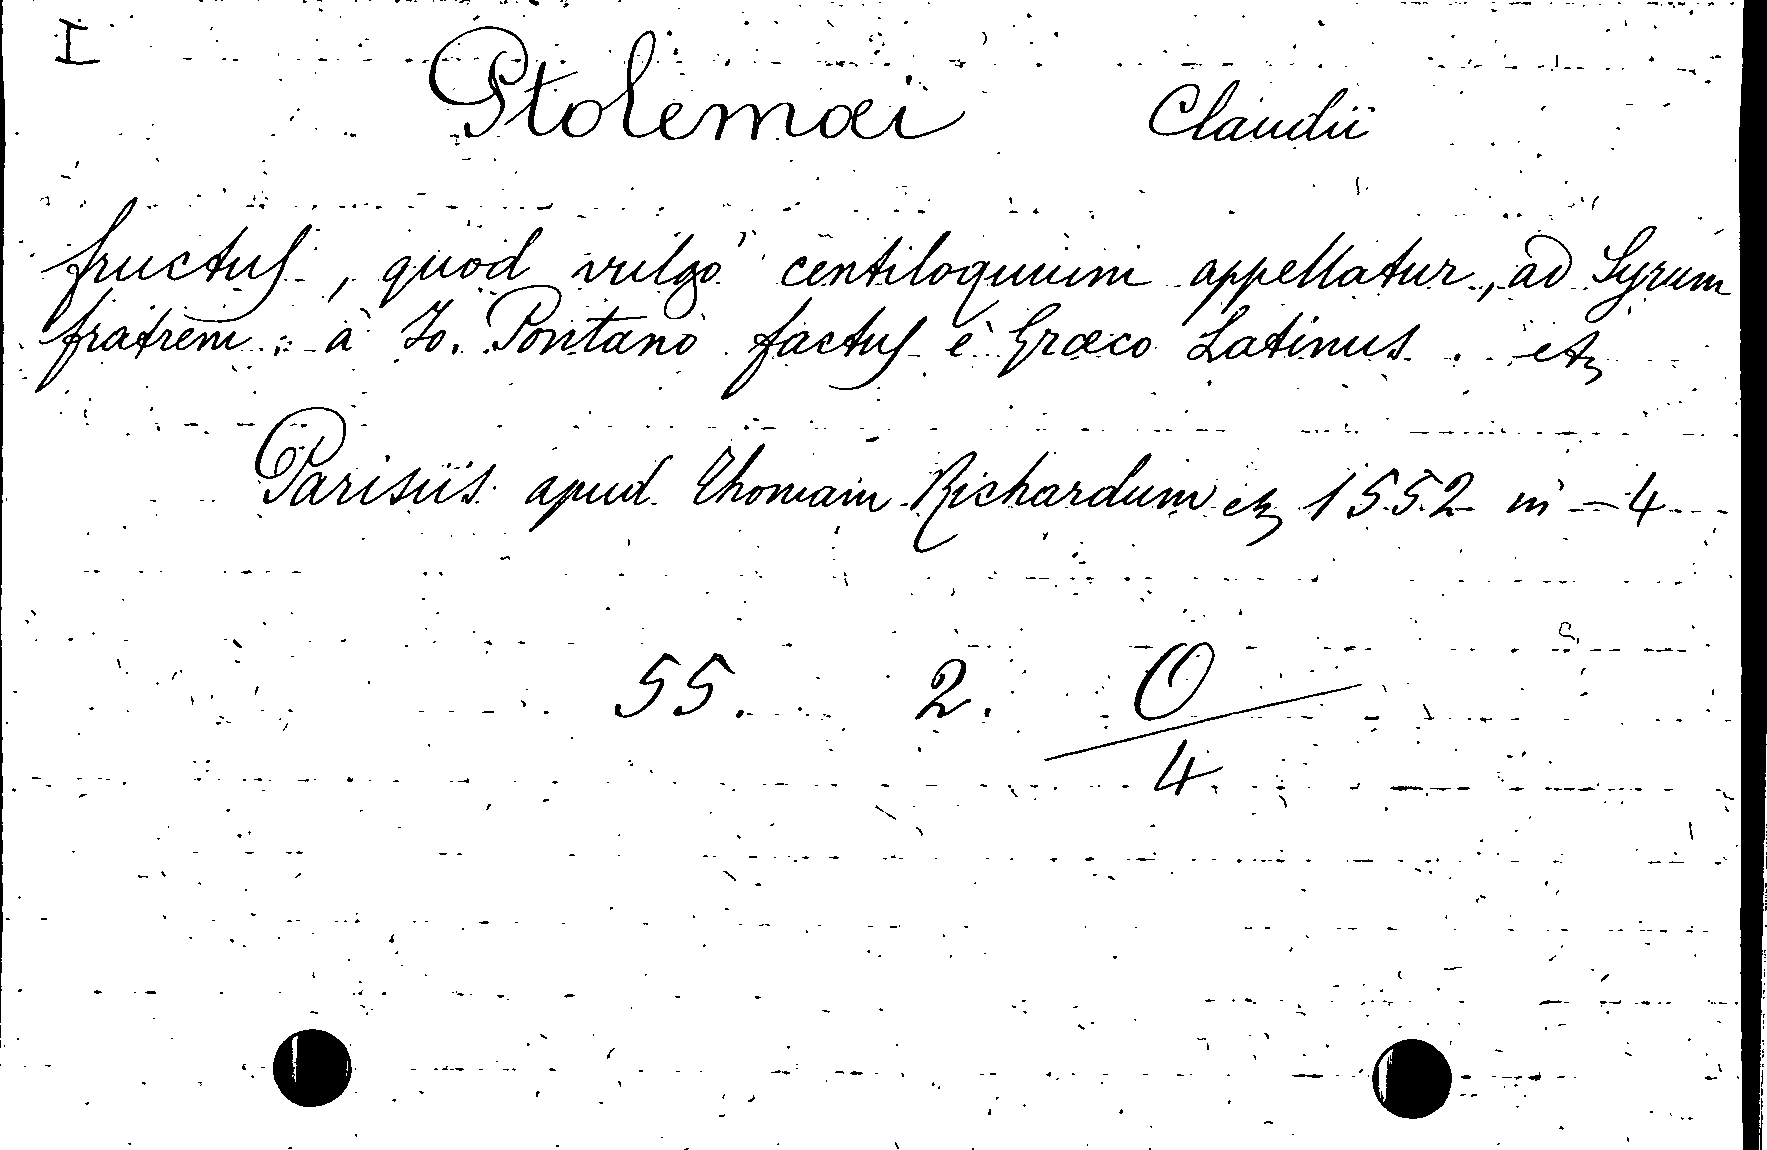 I
Ptolemæi Claudii
fructus, quod vulgo centiloquium appellatur, ad Syrum
fratrem: à Jo. Pontano factus è Græco Latinus. etc
Parisiis apud Thomam Richardum etc 1552 in-4
55. 2. O
4